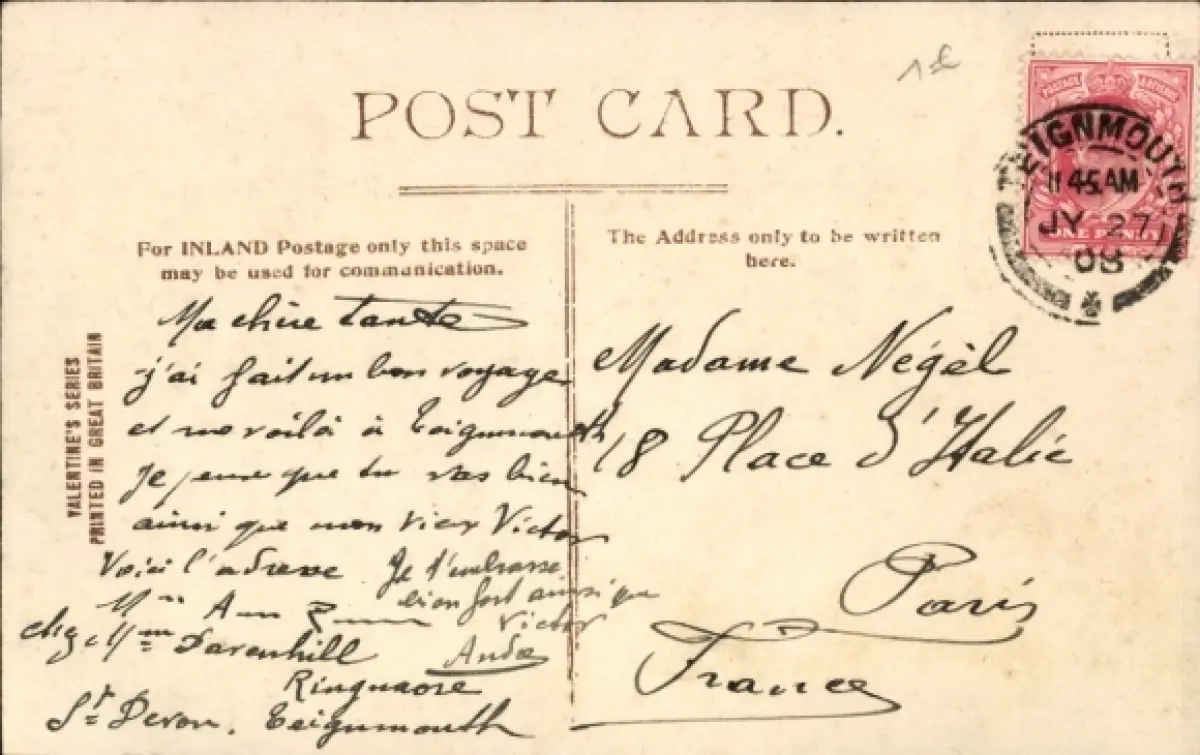 1 €
POST CARD.
TEIGNMOUTH
11 45 AM
JY 27
08
POSTAGE
ONE PENNY
For INLAND Postage only this space
may be used for communication.
The Address only to be written
here.
VALENTINE'S SERIES
PRINTED IN GREAT BRITAIN
Ma chère tante
j'ai fait un bon voyage
et me voilà à Teignmouth
Je pense que tu vas bien
ainsi que mon vieux Victor
Voici l'adresse
Je t'embrasse
bien fort ainsi que
Victor
chez Mme Davenhill
Ringmore
St Devon. Teignmouth
Madame Négèl
18 Place d'Italie
Paris
France